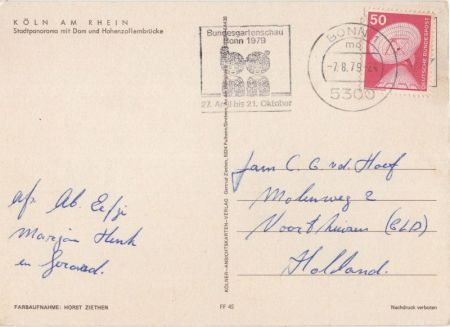 KÖLN AM RHEIN
Stadtpanorama mit Dom und Hohenzollernbrücke
Bundesgartenschau
Bonn 1979
27. April bis 21. Oktober
BONN 1
mg
-7.8.79
5300
50
DEUTSCHE BUNDESPOST
afz. Ab.
Marjan Henk
en Gerard.
Fam C. G. v.d. Hoef
Molenweg 2
Voorthuizen (GLD)
Holland.
KÖLNER-ANSICHTSKARTEN-VERLAG Gertrud Ziethen,
FARBAUFNAHME: HORST ZIETHEN
FF 45
Nachdruck verboten